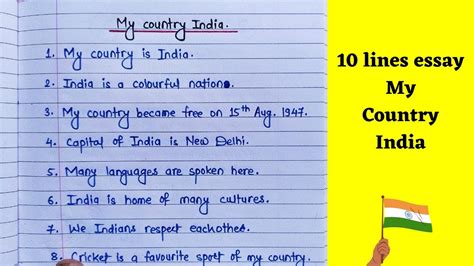 My country India.
1. My country is India.
2. India is a colourful nation.
3. My country became free on 15th Aug. 1947.
4. Capital of India is New Delhi.
5. Many languages are spoken here.
6. India is home of many cultures.
7. We Indians respect eachother.
8. Cricket is a favourite sport of my country.
10 lines essay
My
Country
India